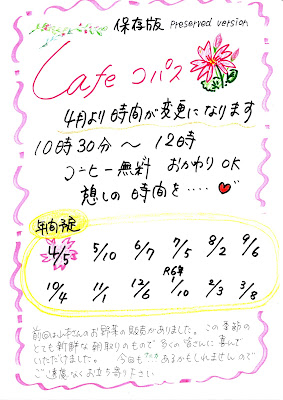 保存版 Preserved version
Cafe コパス
4月より時間が変更になります
10時30分～12時
コーヒー無料 おかわりOK
憩しの時間を‥‥
年間予定
4/5 5/10 6/7 7/5 8/2 9/6
R6年
10/4 11/1 12/6 1/10 2/3 3/8
前回はのお野菜の販売がありました。この季節の
とても新鮮な朝取りのもので多くの皆さんに喜んで
いただけました。 今回もあるかもしれませんので
ご遠慮なくお立ち寄りください